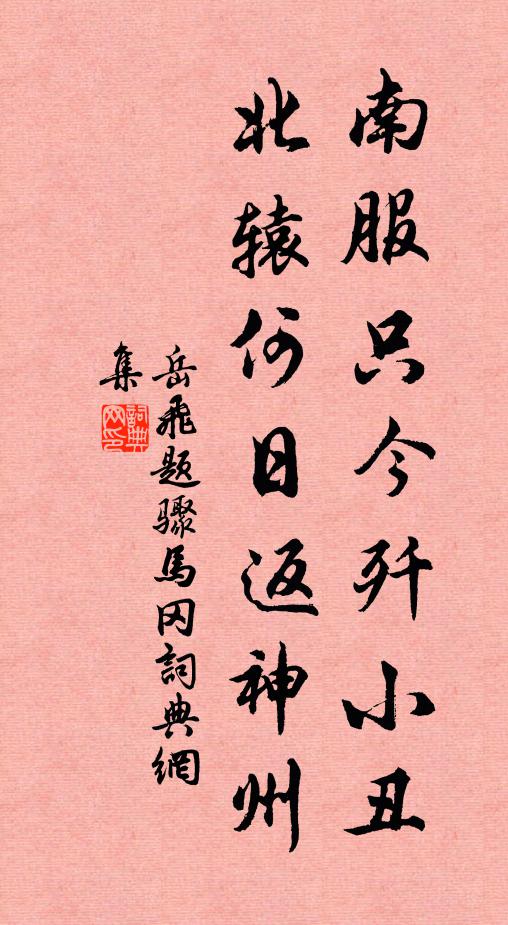 南服只今歼小丑
北辕何日返神州
岳飛題驟馬冈詞典網
集
詞典
网印